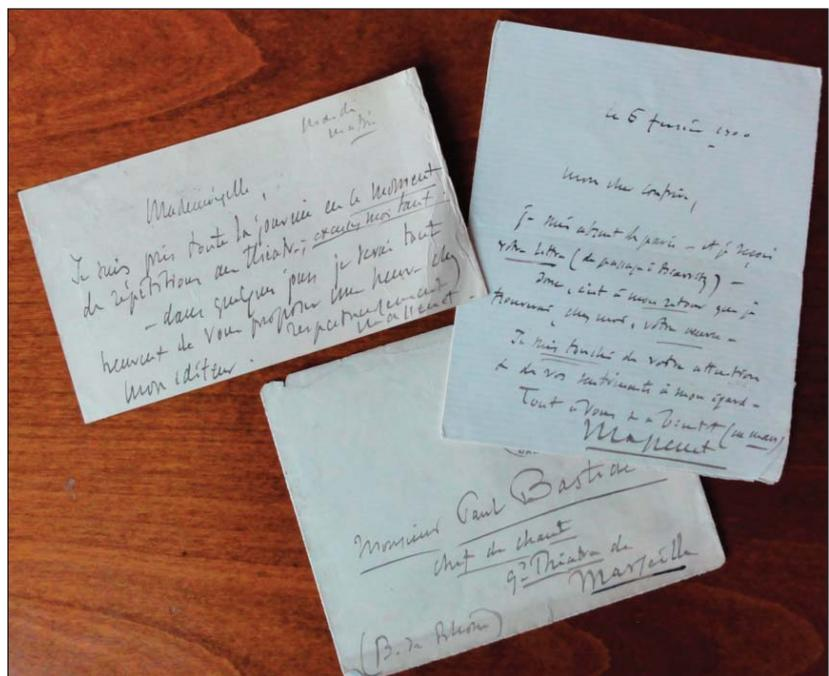 Mardi
matin
Mademoiselle,
Je suis pris toute la journée en ce moment
de répétitions au théâtre; excusez moi tant
– dans quelques jours je serai tout
heureux de vous proposer une heure chez
mon éditeur. respectueusement)
Massenet
le 6 février 1900
mon cher confrère,
Je suis absent de paris – et je reçois
votre lettre (de passage à Biarritz) –
Donc, c'est à mon retour que je
trouverai, chez moi, votre œuvre –
Je suis touché de votre attention
& de vos sentiments à mon égard –
Tout à vous & à bientôt (en mars)
Massenet
Monsieur Paul Bastide
chef de chant
gd Théâtre de
Marseille
(B. du Rhône)